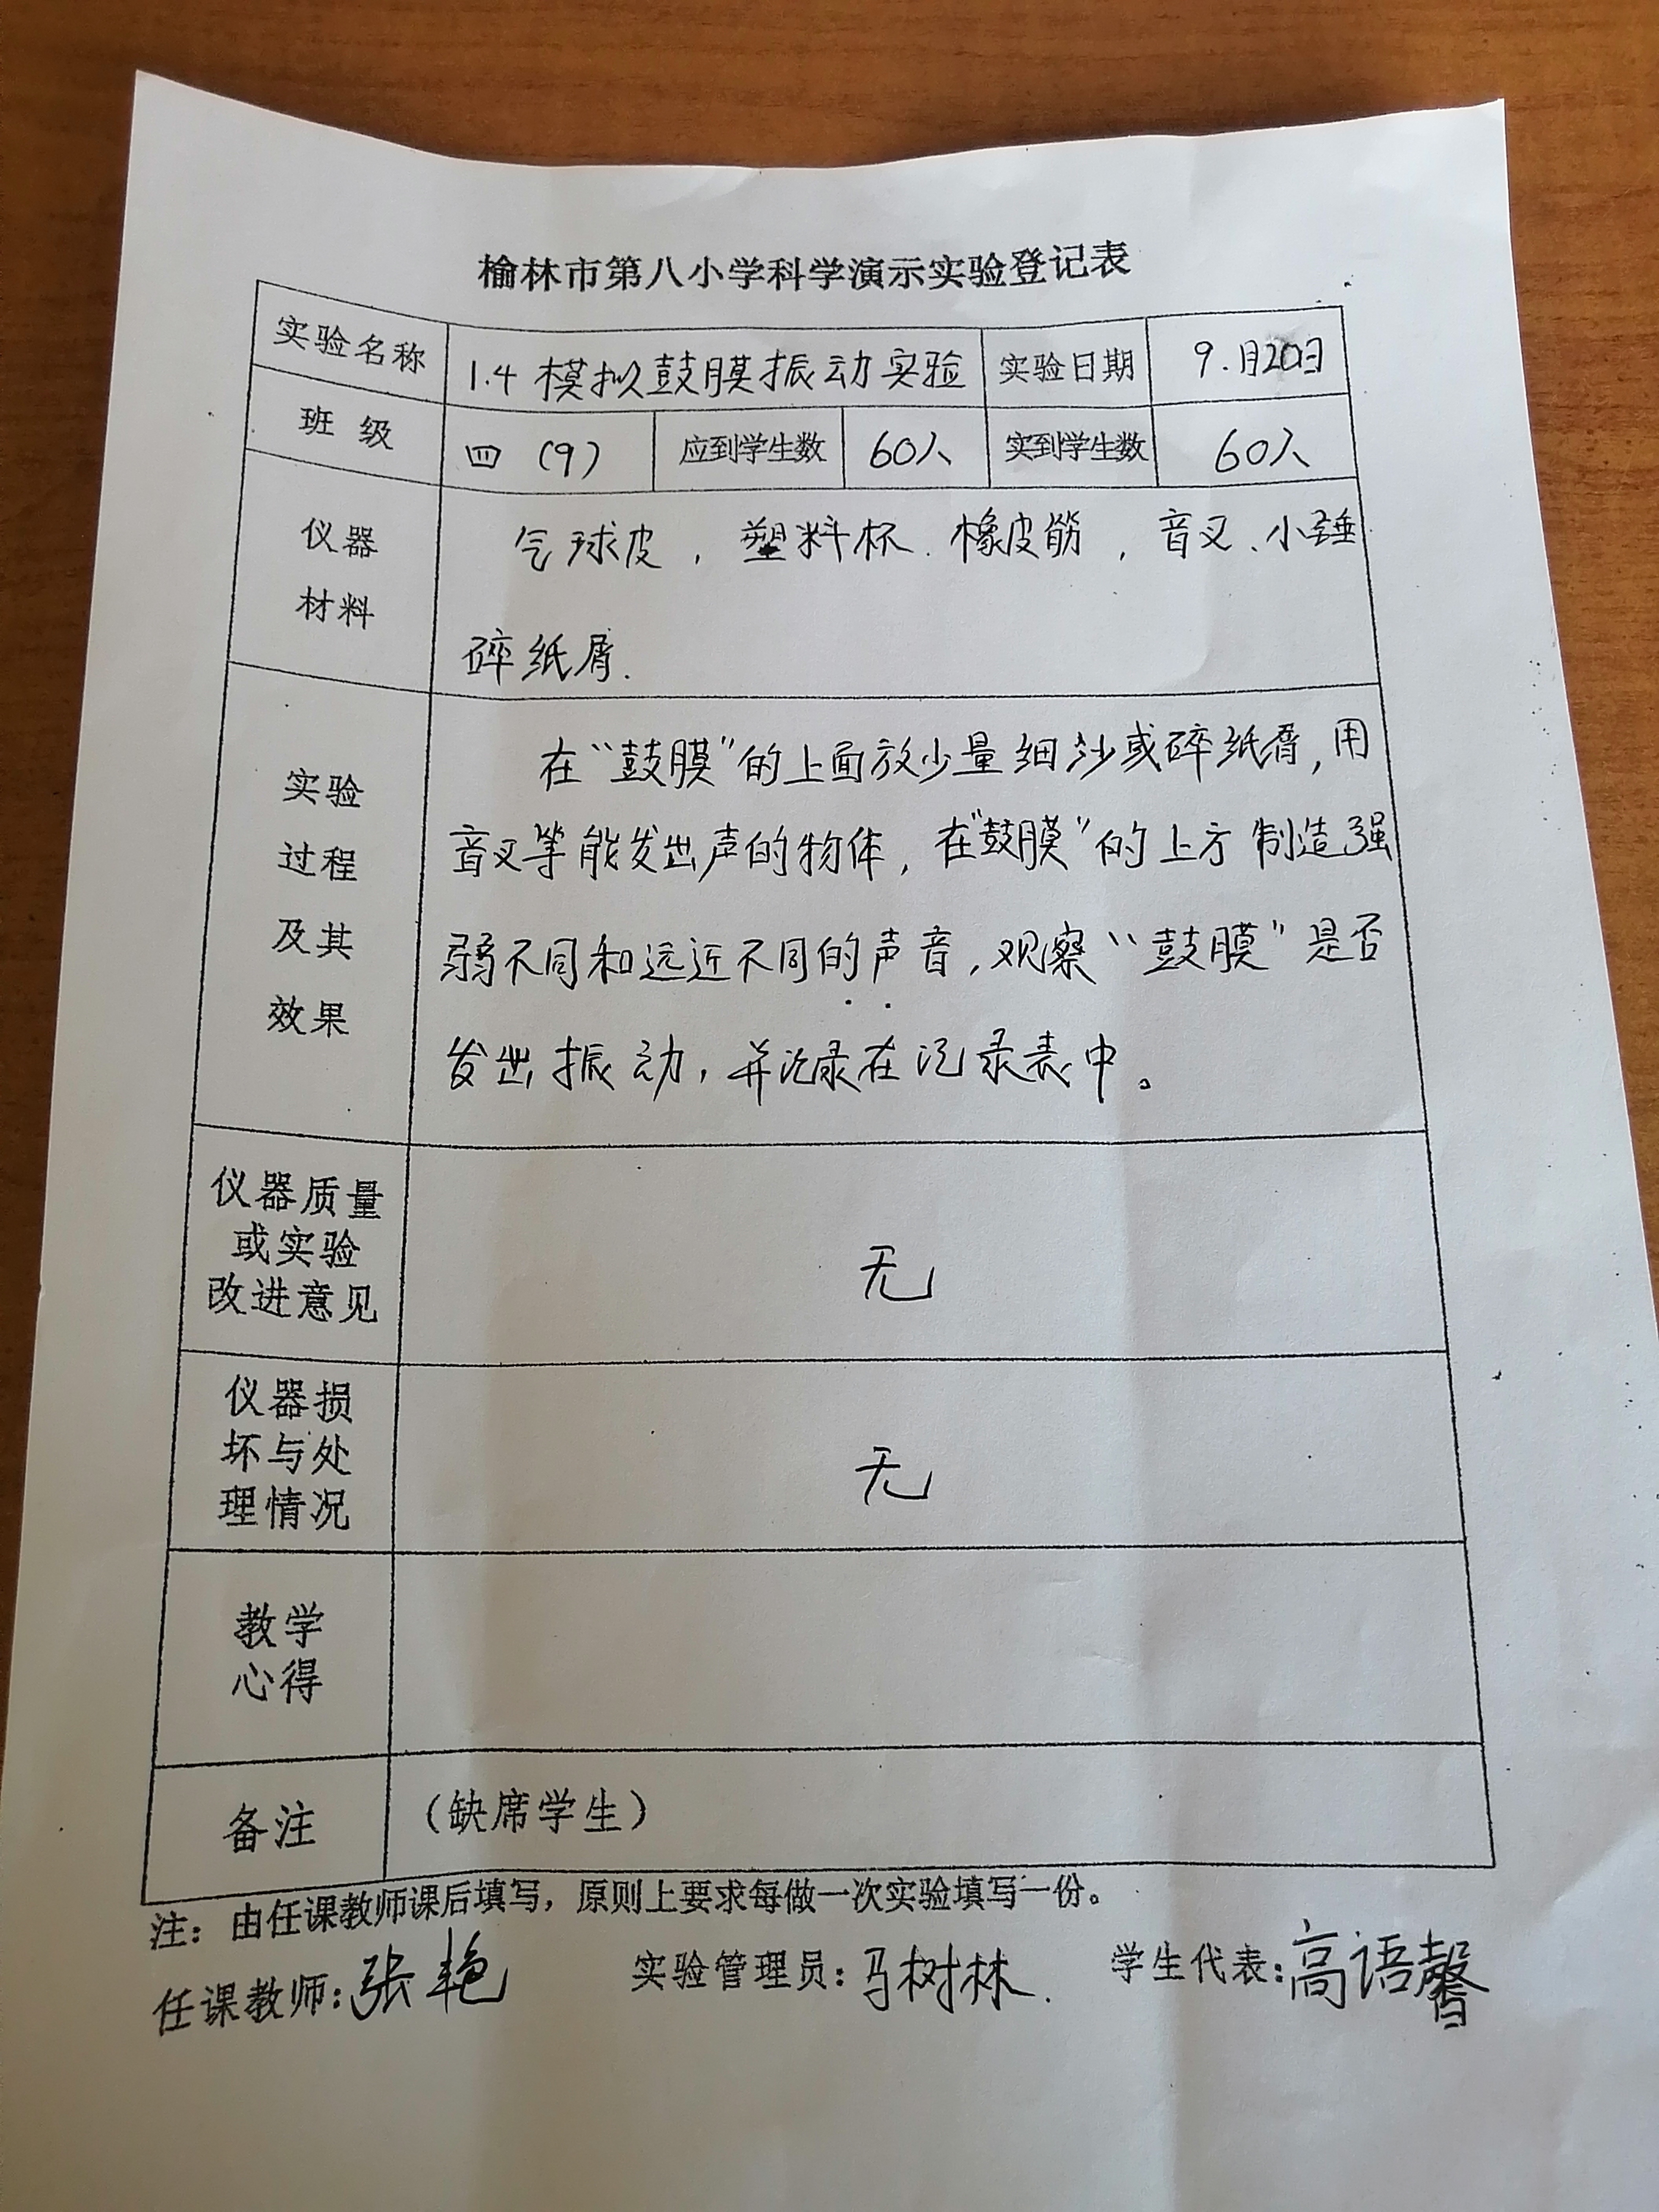 榆林市第八小学科学演示实验登记表
实验名称 1.4 模拟鼓膜振动实验 实验日期 9.月20日
班 级 四 (9) 应到学生数 60人 实到学生数 60人
仪器
材料
气球皮，塑料杯.橡皮筋，音叉、小锤
碎纸屑.
实验
过程
及其
效果
在“鼓膜”的上面放少量细沙或碎纸屑，用
音叉等能发出声的物体，在“鼓膜”的上方制造强
弱不同和远近不同的声音，观察“鼓膜”是否
发出振动，并记录在记录表中。
仪器质量
或实验
改进意见
无
仪器损
坏与处
理情况
无
教学
心得
备注 （缺席学生）
注：由任课教师课后填写，原则上要求每做一次实验填写一份。
任课教师：张艳 实验管理员：马树林. 学生代表：高语馨